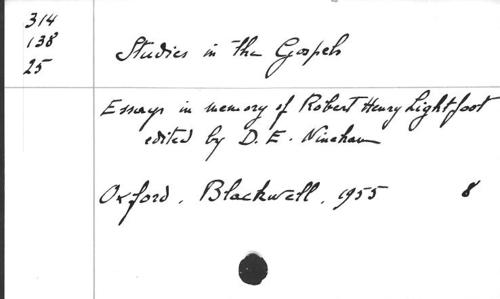 314
138
25
Studies in the Gospels
Essays in memory of Robert Henry Lightfoot
edited by D. E. Nineham
Oxford, Blackwell, 1955 8